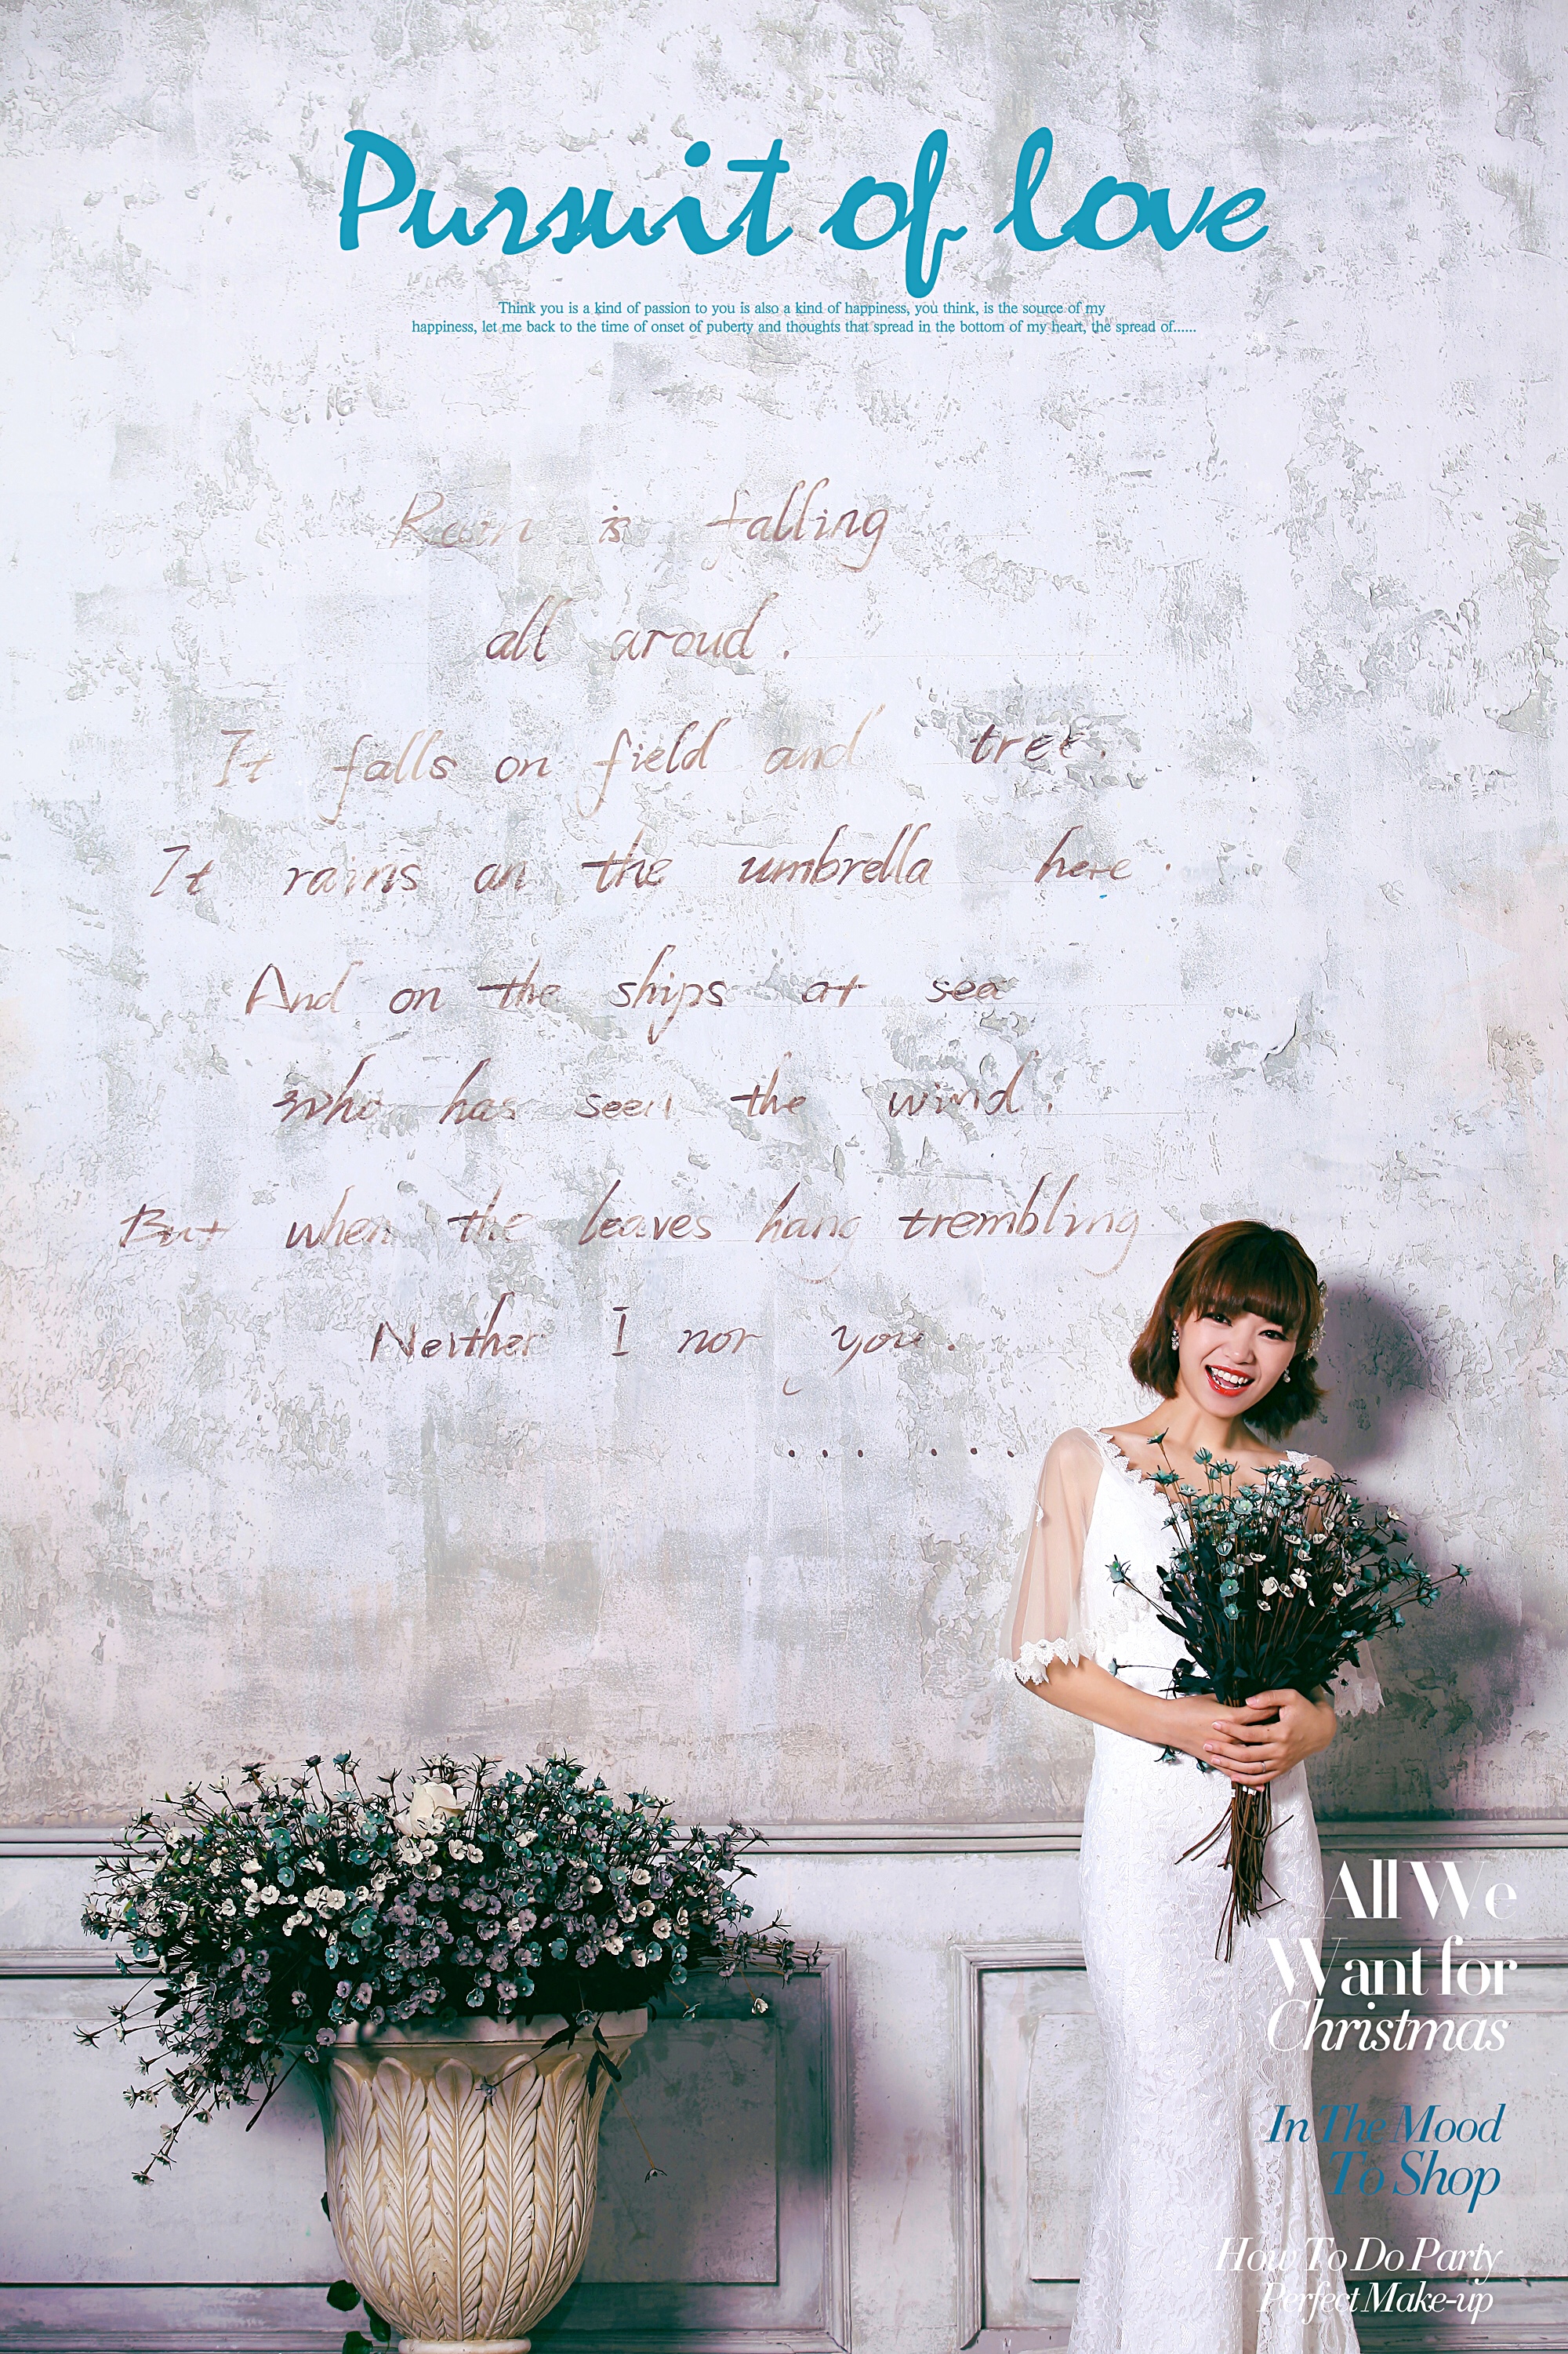 Pursuit of love
Think you is a kind of passion to you is also a kind of happiness, you think, is the source of my
happiness, let me back to the time of onset of puberty and thoughts that spread in the bottom of my heart, the spread of......
Rain is falling
all aroud.
It falls on field and tree.
It rains an the umbrella here.
And on the ships at sea
who has seen the wind.
But when the leaves hang trembling
Neither I nor you.
... ...
All We
Want for
Christmas
In The Mood
To Shop
How To Do Party
Perfect Make-up